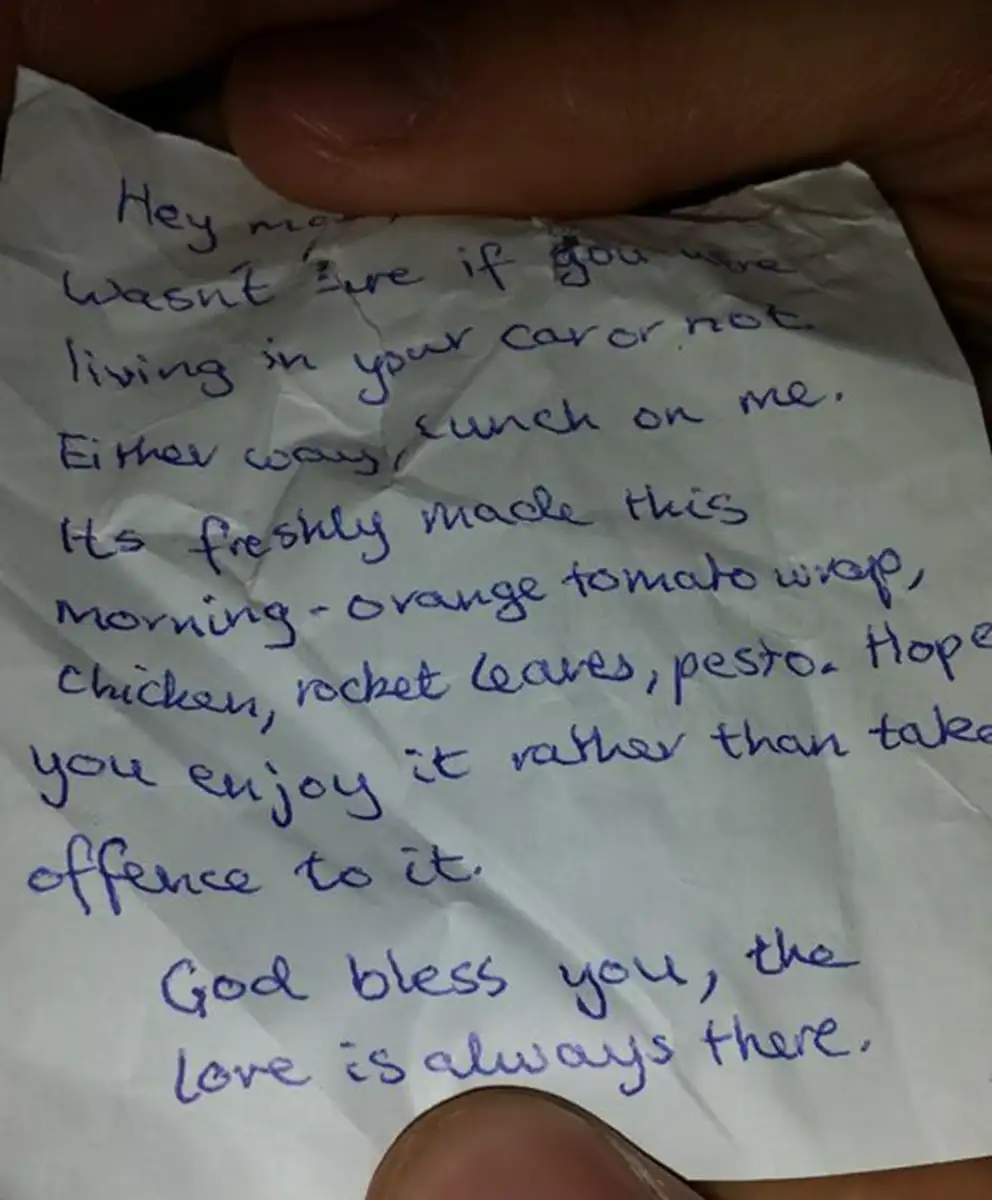 Hey
Wasn't sure if you were
living in your car or not.
Either way, lunch on me.
Its freshly made this
morning - orange tomato wrap,
chicken, rocket leaves, pesto. Hope
you enjoy it rather than take
offence to it.
God bless you, the
love is always there.